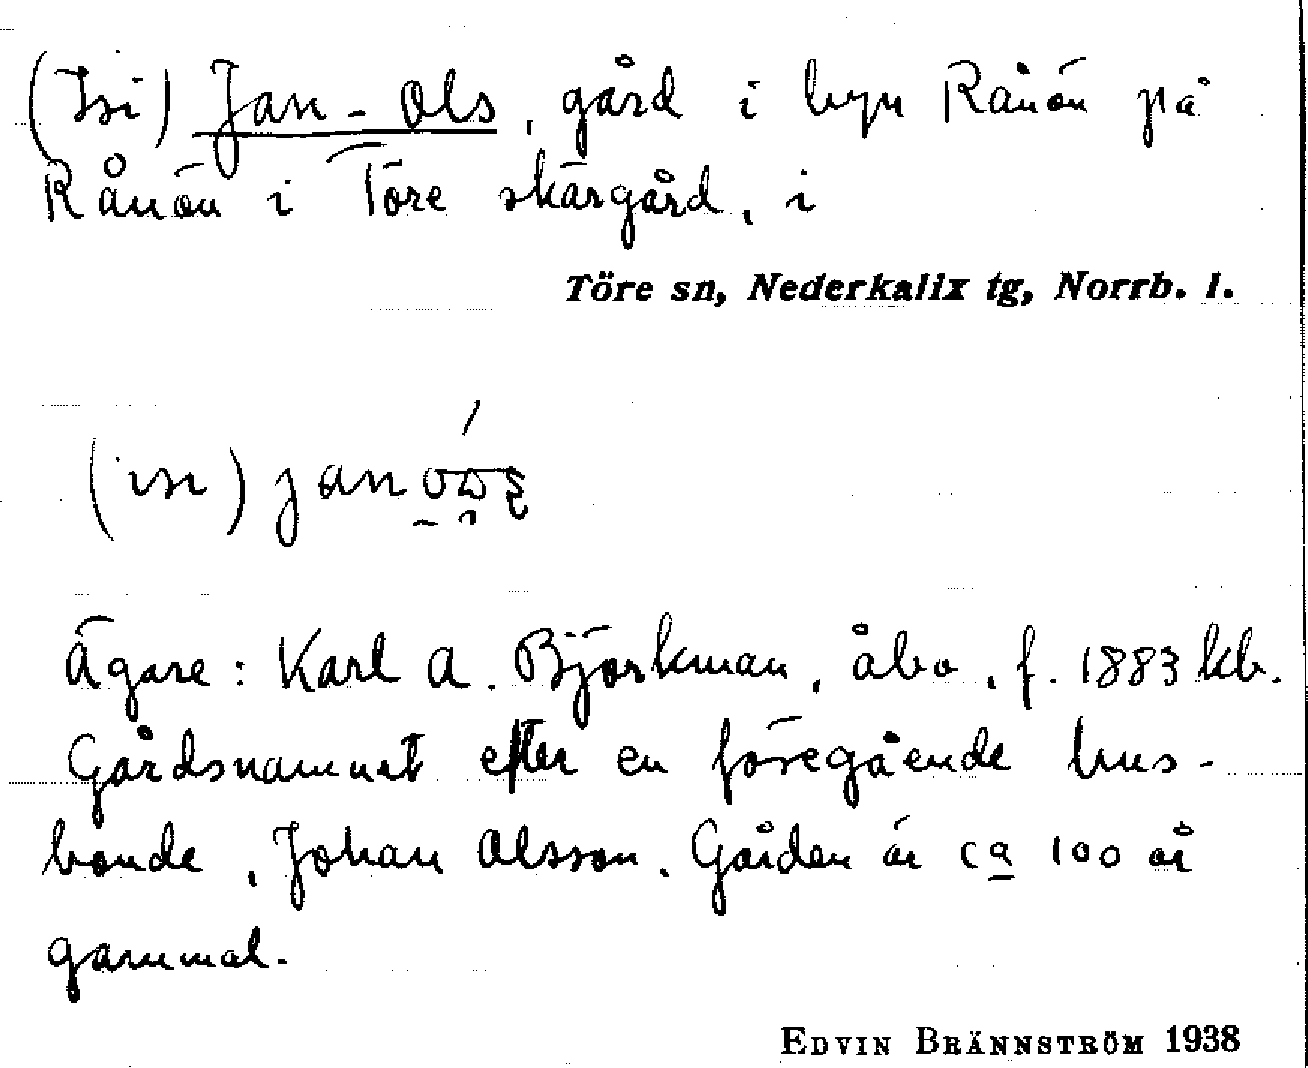 (Isi) Jan-Ols, gård i byn Rånön på
Rånön i Töre skärgård, i
Töre sn, Nederkalix tg, Norrb. l.
Ägare: Karl A. Björkman, åbo, f. 1883 kb.
Gårdsnamnet efter en föregående hus-
bonde, Johan Olsson. Gården är ca 100 år
gammal.
EDVIN BRÄNNSTRÖM 1938